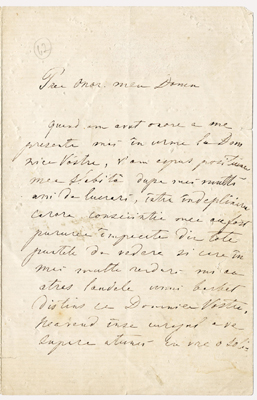 Prea onor. meu Domn
quand am avut onore a me
presenta mai in urma la Dom
nia Vostra, V'am expus positiunea
mea slabită dupa mai multi
ani de lucrari, catra indeplinirea
carora consciintia mea au fost
pururea impacata din tote
punctele de vedere si care in
mai multe renduri mi au
atras laudele unui barbat
distins ca Domnia Vostra,
neavend inse curagiul a ve
supera atunci cu vre o soli